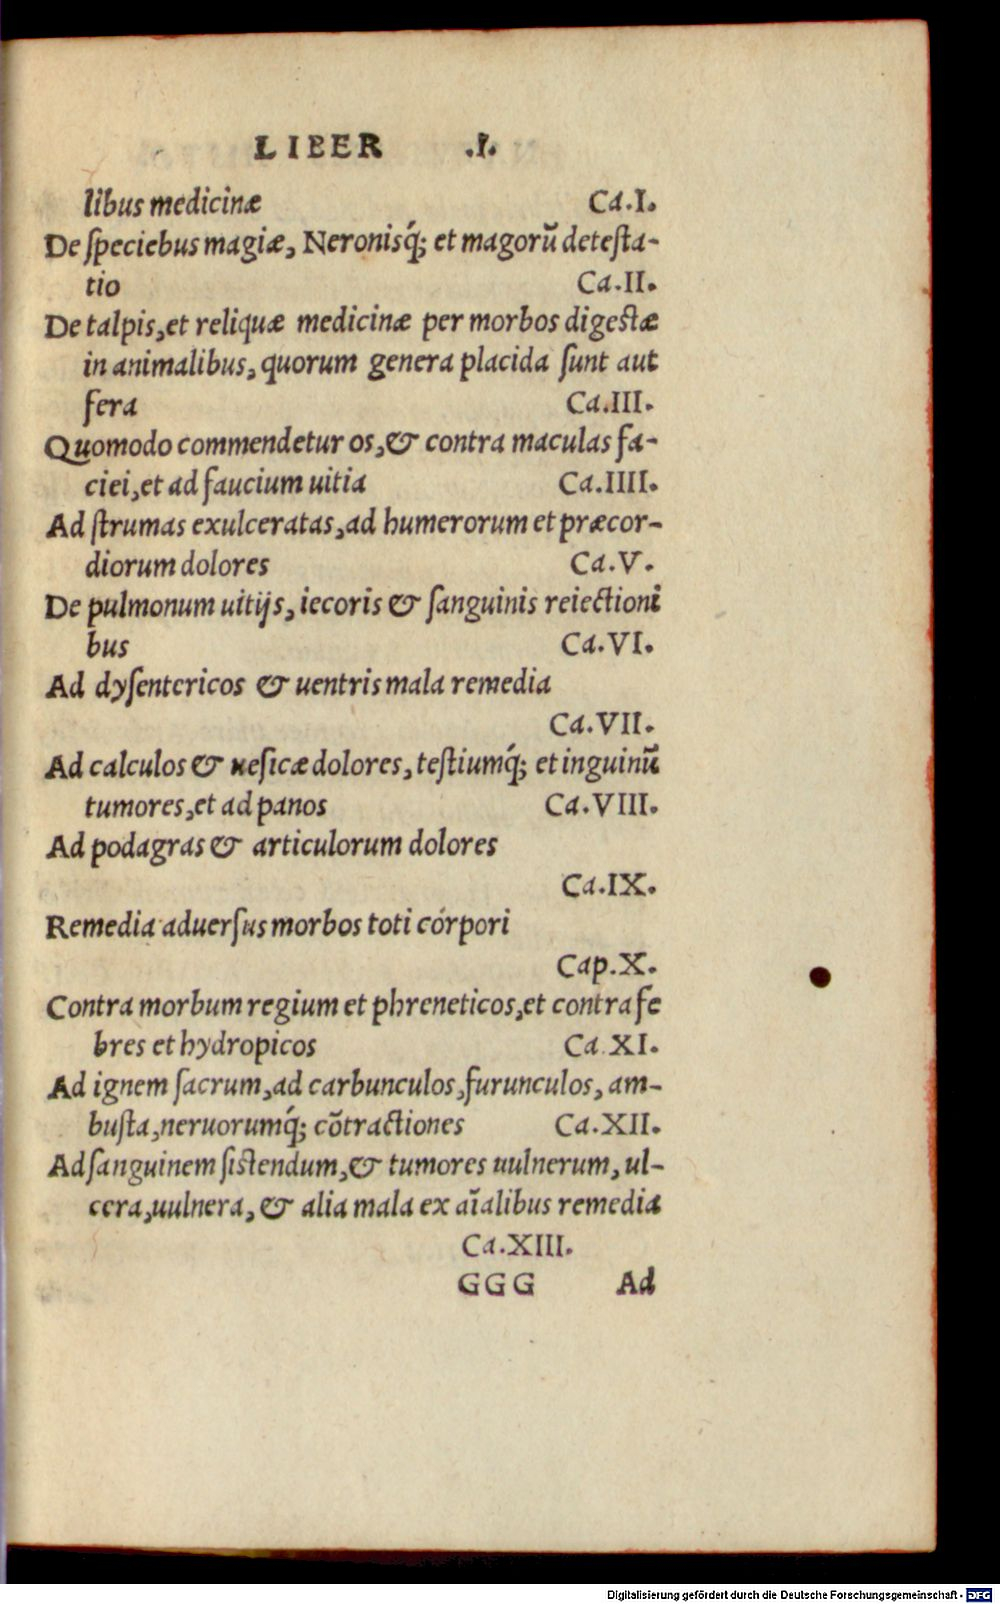 LIBER .I.
libus medicinæ Ca.I.
De ſpeciebus magiæ, Neronisq́; et magorũ deteſta-
tio Ca.II.
De talpis, et reliquæ medicinæ per morbos digestæ
in animalibus, quorum genera placida ſunt aut
fera Ca.III.
Quomodo commendetur os, & contra maculas fa-
ciei, et ad faucium uitia Ca.IIII.
Ad ſtrumas exulceratas, ad humerorum et præcor-
diorum dolores Ca.V.
De pulmonum uitijs, iecoris & ſanguinis reiectioni
bus Ca.VI.
Ad dyſentericos & uentris mala remedia
Ca.VII.
Ad calculos & ueſicæ dolores, teſtiumq́; et inguinũ
tumores, et ad panos Ca.VIII.
Ad podagras & articulorum dolores
Ca.IX.
Remedia aduerſus morbos toti córpori
Cap.X.
Contra morbum regium et phreneticos, et contra fe
bres et hydropicos Ca.XI.
Ad ignem ſacrum, ad carbunculos, furunculos, am-
buſta, neruorumq́; cõtractiones Ca.XII.
Ad ſanguinem ſistendum, & tumores uulnerum, ul-
cera, uulnera, & alia mala ex aĩalibus remedia
Ca.XIII.
GGG Ad
Digitalisierung gefördert durch die Deutsche Forschungsgemeinschaft - DFG